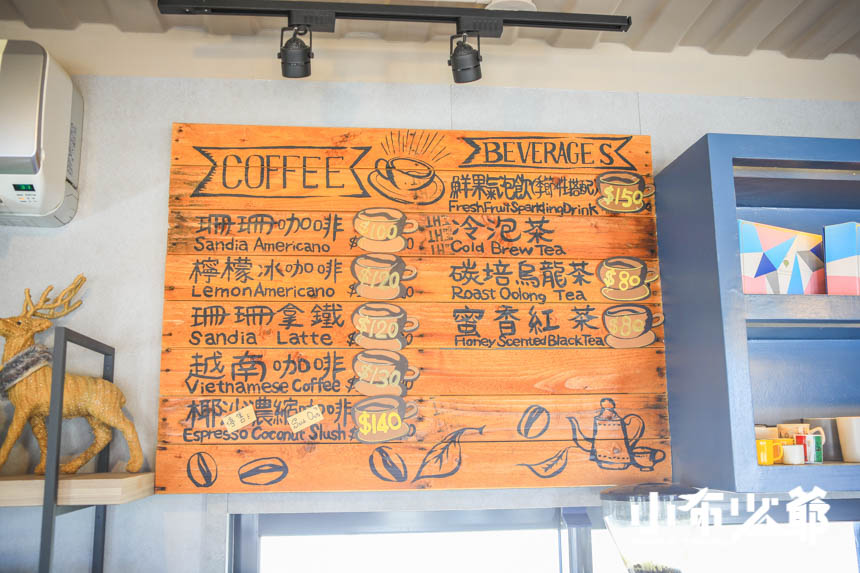 COFFEE
珊珊咖啡 $100
Sandia Americano
檸檬冰咖啡 $120
Lemon Americano
珊珊拿鐵 $120
Sandia Latte
越南咖啡 $130
Vietnamese Coffee
椰沙濃縮咖啡 $140
Espresso Coconut Slush
BEVERAGES
鮮果氣泡飲 $150
Fresh Fruit Sparkling Drink
冷泡茶
Cold Brew Tea
碳培烏龍茶 $80
Roast Oolong Tea
蜜香紅茶 $80
Honey Scented Black Tea
山布少爺